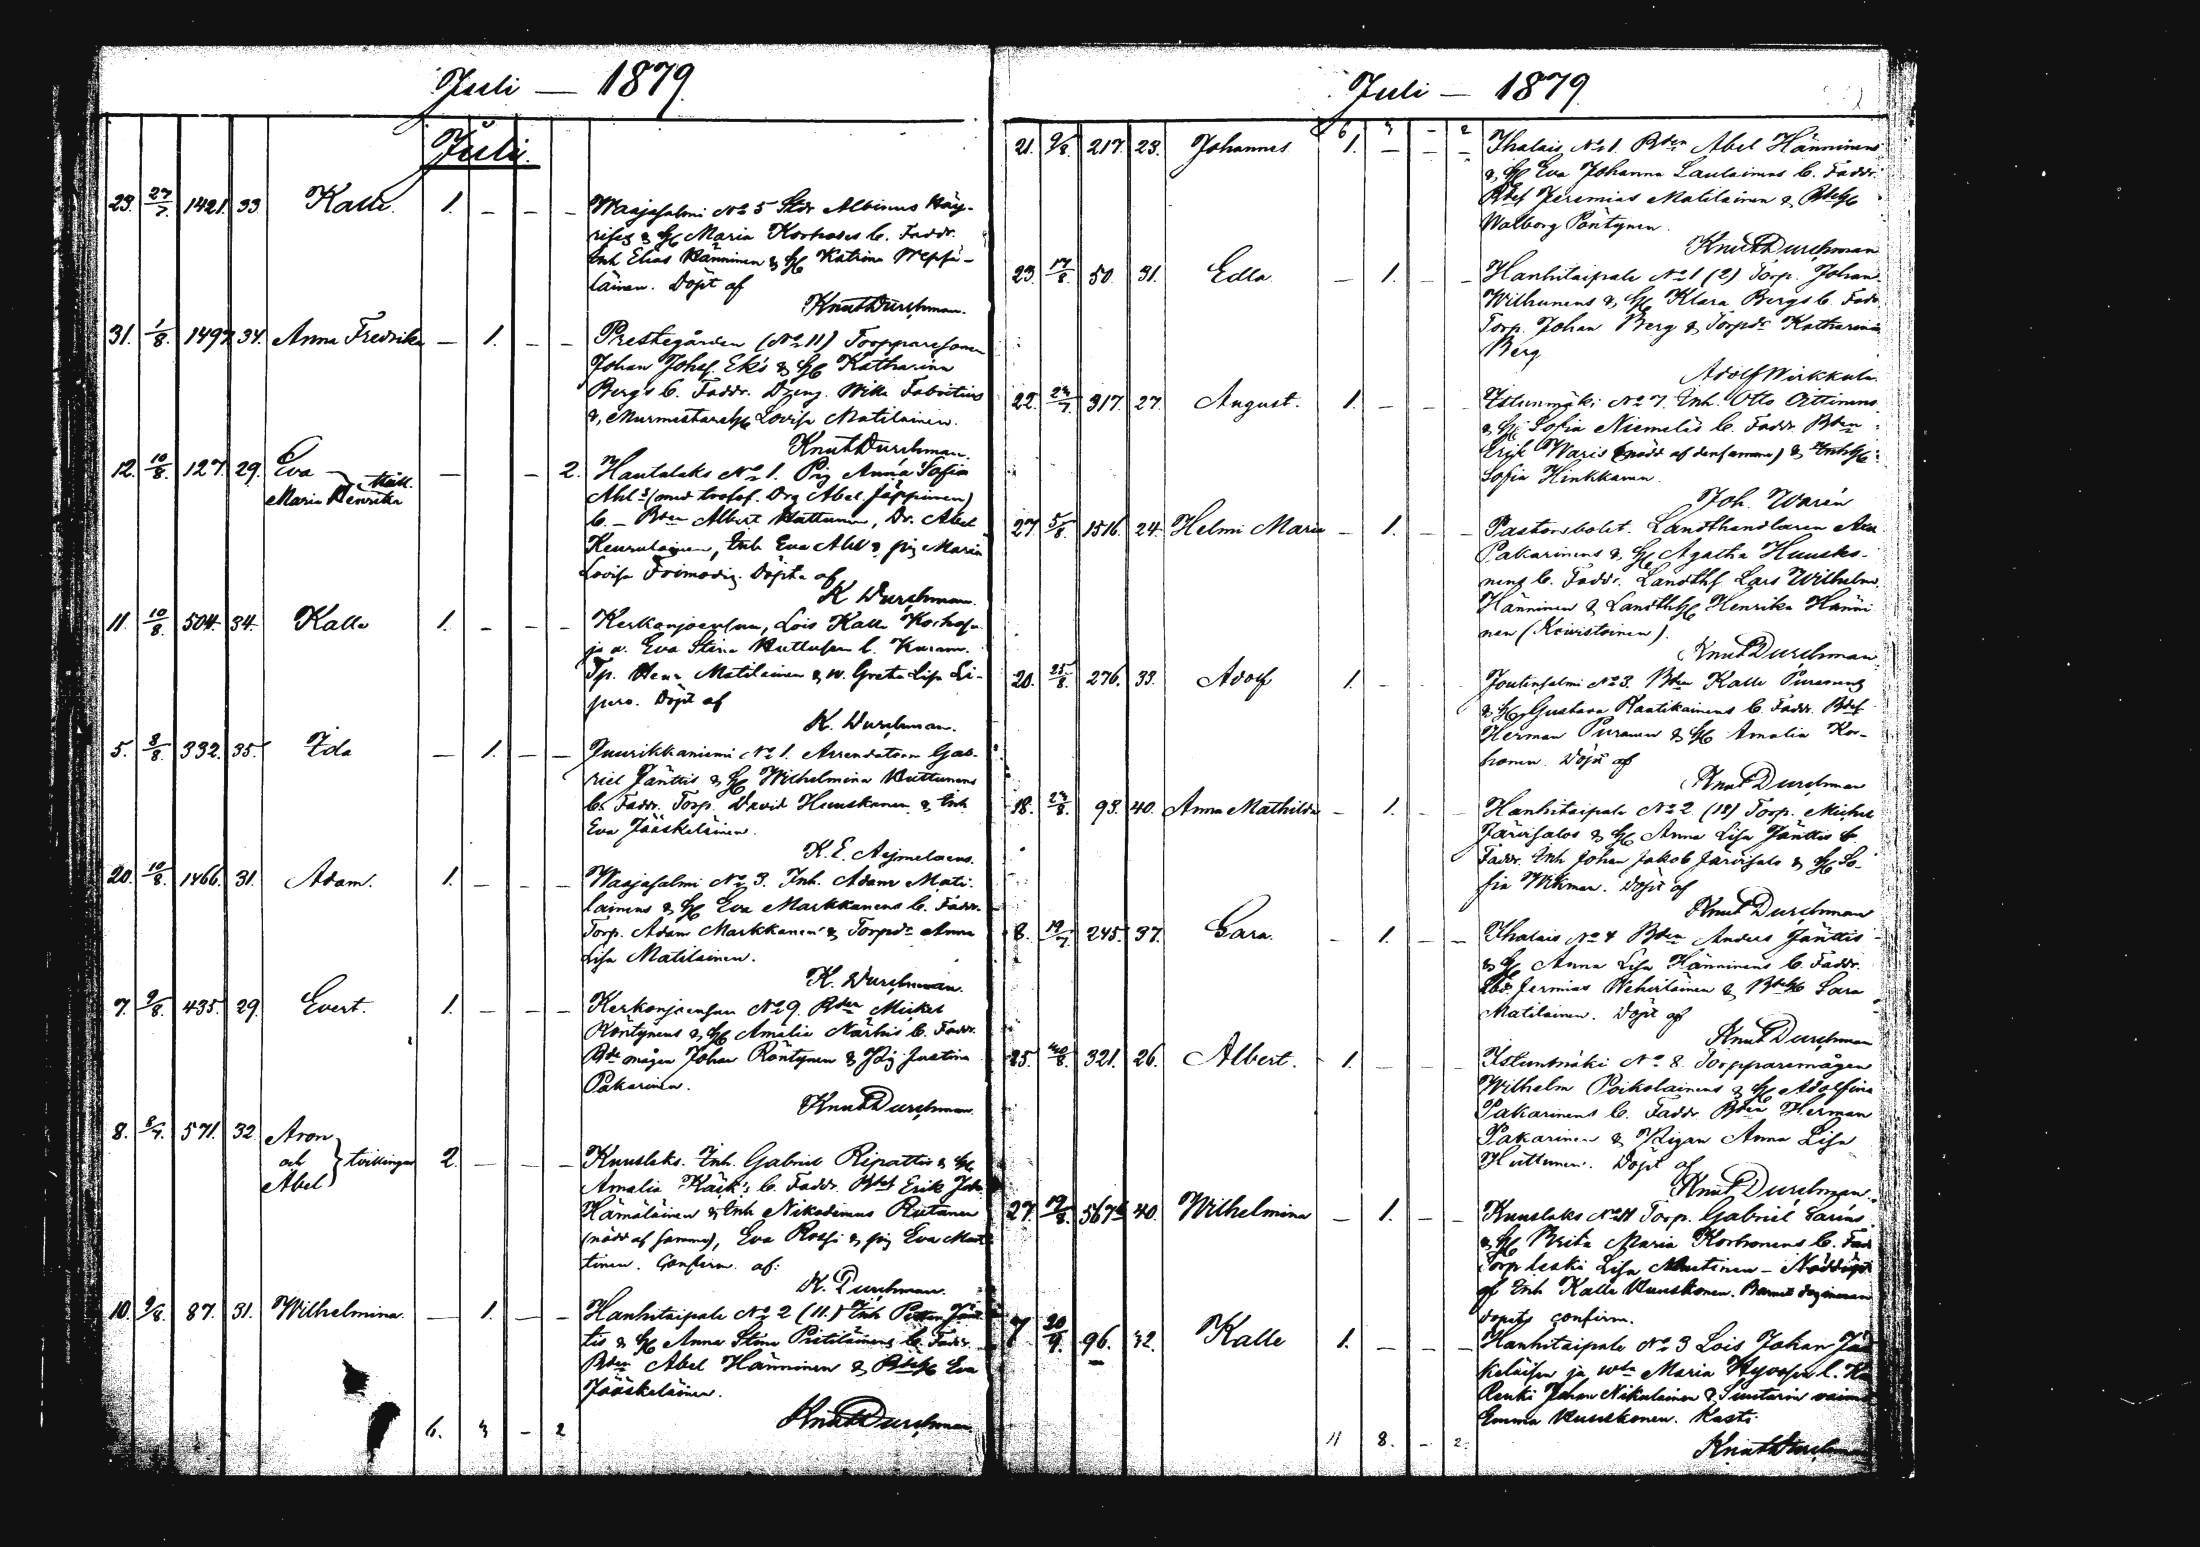 Juli — 1879.
Juli.
23. 27/7. 1421. 33. Kalle. 1. — — —
Waajasalmi No 5 Stdr Albinus
& H Maria Korhoses b. Faddr.
Inh Elias Hänninen & H Katrina
läinen. Döpt af
Knut Durchman.
31. 1/8. 1497. 34. Anna Fredrika — 1. — —
Prestegården (No 11) Torpparesonen
Johan Johs. Ek's & H Katharina
Bergs b. Faddr. Dreng. Wille Fabritius
& Murmestareh Lovisa Matilainen.
Knut Durchman.
12. 10/8. 127. 29. Eva — — — 2.
Maria Henrika
Hautalaks No 1. Pig Anna Sofia
Ahls (med trolof. Drg Abel Jäppinen)
b. — Bden Albert Huttunen, Dr. Abel
Keurulainen, Inh Eva Ahl & pig Maria
Lovisa Döpta af
K Durchman.
11. 10/8. 504. 34. Kalle 1. — — —
Kerkonjoensuu, Lois Kalle Korhosen
ja v. Eva Stina Huttusen l. Kumm.
Tp. Hen. Matilainen & w. Greta Lisa Li-
pero. Döpt af
K. Durchman.
5. 8/8. 332. 35. Ida — 1. — —
Juurikkaniemi No 1. Arrendatorn Gab-
riel Jänttis & H Wilhelmina Huttunens
b. Faddr. Torp. David Huuskonen & Inh
Eva Jääskeläinen.
K. E. Aejmelaeus.
20. 10/8. 1466. 31. Adam. 1. — — —
Waajasalmi No 3. Inh. Adam Mati-
lainens & H Eva Markkanens b. Faddr.
Torp. Adam Markkanen & Torpdr Anna
Lisa Matilainen.
K. Durchman.
7. 9/8. 435. 29. Evert. 1. — — —
Kerkonjoensuu No 9. Bden Mickel
Röntynens & H Amalia Närhis b. Faddr.
Bde mågen Johan Röntynen & Pig Justina
Pakarinen.
Knut Durchman.
8. 571. 32. Aron
och
Abel } tvillingar 2. — — —
Knuslaks. Inh. Gabriel Ripattis & H
Amalia Käck's b. Faddr. Bdes Erik Joh.
Hämäläinen & Inh Nikodemus Rutanen
(nödd af samma), Eva Rossi & pig Eva
tinen. Confirm. af:
K. Durchman.
10. 9/8. 87. 31. Wilhelmina. — 1. — —
Hanhitaipale No 2 (11.) Inh Petter Jänt-
tis & H Anna Stina b. Faddr.
Bden Abel Hänninen & Bdeh Eva
Jääskeläinen.
Knut Durchman
6. 4 — 2
Juli — 1879.
6 4 — 2
21. 9/8. 217. 23. Johannes 1. — — —
Ihalais No 1. Bden Abel Hänninens
& H Eva Johanna Laulainens b. Faddr.
Bdes Jeremias Matilainen & Bdeh
Walborg Pöntynen.
Knut Durchman
23. 17/8. 50. 31. Edla — 1. — —
Hanhitaipale No 1 (2) Torp. Johan
Wilhunens & H Klara Bergs b. Fadr.
Torp. Johan Berg & Torpdr Katharina
Berg
Adolf Wirkkula.
22. 317. 27. August. 1. — — —
Istunmäki No 7. Inh. Otto Oittinens
& H Sofia Niemeläs b. Faddr. Bden
Erik Waris (nödd af densamma) & Inhh
Sofia Hinkkanen.
Joh. Warén
27. 5/8. 1516. 24. Helmi Maria — 1. — —
Pastorsbolet. Landthandlaren
Pakarinens & H Agatha Huusko-
nens b. Faddr. Landthl Lars Wilhelm
Hänninen & Landthh Henrika Hänni
nen (Koivistoinen).
Knut Durchman
20. 25/8. 276. 33. Adolf 1. — — —
Joutensalmi No 3. Bden Kalle Puranens
& H Gustava Rautikainens b. Faddr. Bdes
Herman Puranen & H Amalia Kor-
honen. Döpt af
Knut Durchman
18. 24/8. 93. 40. Anna Mathilda — 1. — —
Hanhitaipale No 2 (18) Torp. Michel
Järvisalos & H Anna Lisa Jänttis b.
Faddr. Inh Johan Jakob Järvisalo & H So-
fia Wikman. Döpt af
Knut Durchman
8. 245. 37. Sara. — 1. — —
Ihalais No 4 Bden Anders Jänttis
& H Anna Lisa Hänninens b. Faddr.
Jermias Wehviläinen & Bdeh Sara
Matilainen. Döpt af
Knut Durchman
25. 321. 26. Albert. 1. — — —
Istunmäki No 8. Torpparemågen
Wilhelm Poikolainens & H Adolfina
Pakarinens b. Faddr Bden Herman
Pakarinen & Pigan Anna Lisa
Huttunen. Döpt af
Knut Durchman.
27. 19/8. 567 40. Wilhelmina — 1. — —
Knuslaks No 11 Torp. Gabriel Sarins
& H Brita Maria Korhonens b. Fad
Torp leski Lisa Mutinen — Nöddöpt
af Inh Kalle Huuskonen. Barnet
döpets confirm.
7 20/9. 96. 32. Kalle 1. — — —
Hanhitaipale No 3 Lois Johan Jäs
keläisen ja wmo Maria Hyvösen l. Ku
Renki Johan Nikulainen & Suutarin vaimo
Emma Huuskonen. Kasti
Knut Durchman
11 8. — 2.